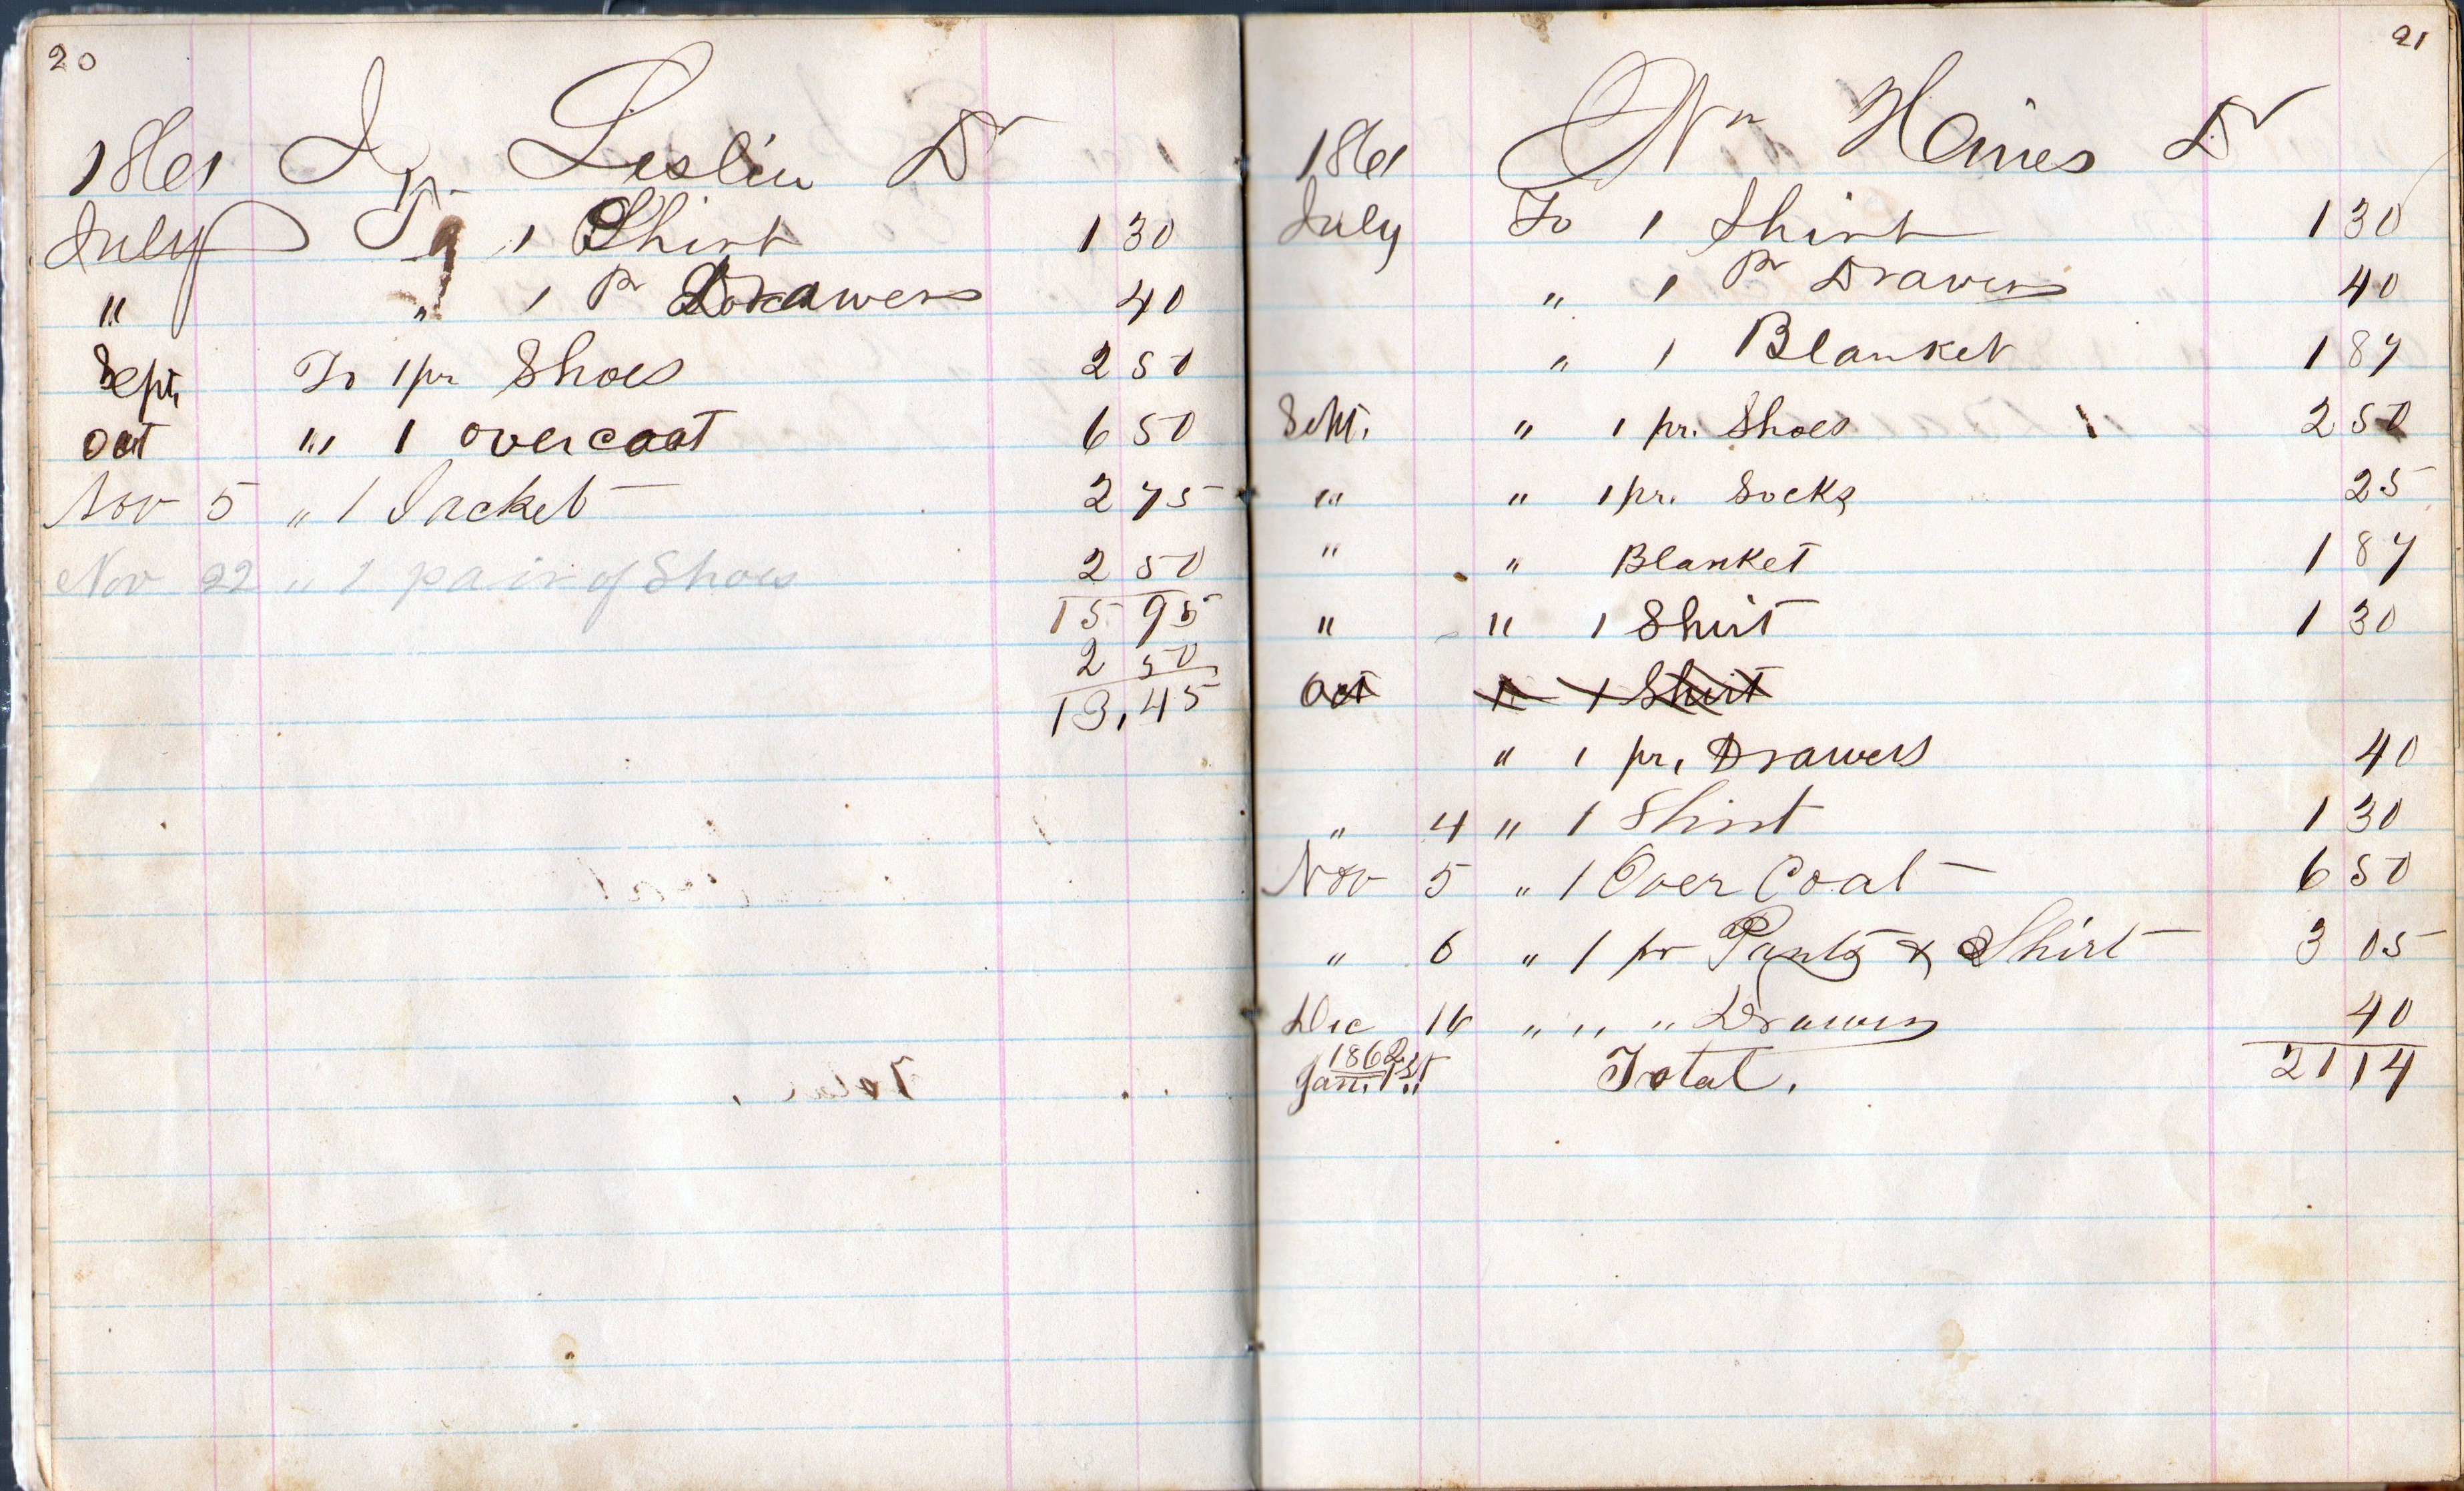 20
1861 Leslie Dr
July To 1 Shirt 1 30
" " 1 Pr Drawers 40
Sept, To 1 pr Shoes 2 50
Oct " 1 overcoat 6 50
Nov 5 " 1 Jacket 2 75
Nov 22 " 1 pair of Shoes 2 50
15 95
2 50
13,45
21
1861 Wm Haines Dr
July To 1 Shirt 1 30
" 1 Pr Drawers 40
" 1 Blanket 1 87
Sept. " 1 pr. Shoes 2 50
" " 1 pr. Socks 25
" " Blanket 1 87
" " 1 Shirt 1 30
Oct " 1 Shirt
" 1 pr, Drawers 40
" 4 " 1 Shirt 1 30
Nov 5 " 1 Over Coat 6 50
" 6 " 1 pr Pants & Shirt 3 05
Dec 16 " " " Drawers 40
1862
Jan. 1st Total. 21 14